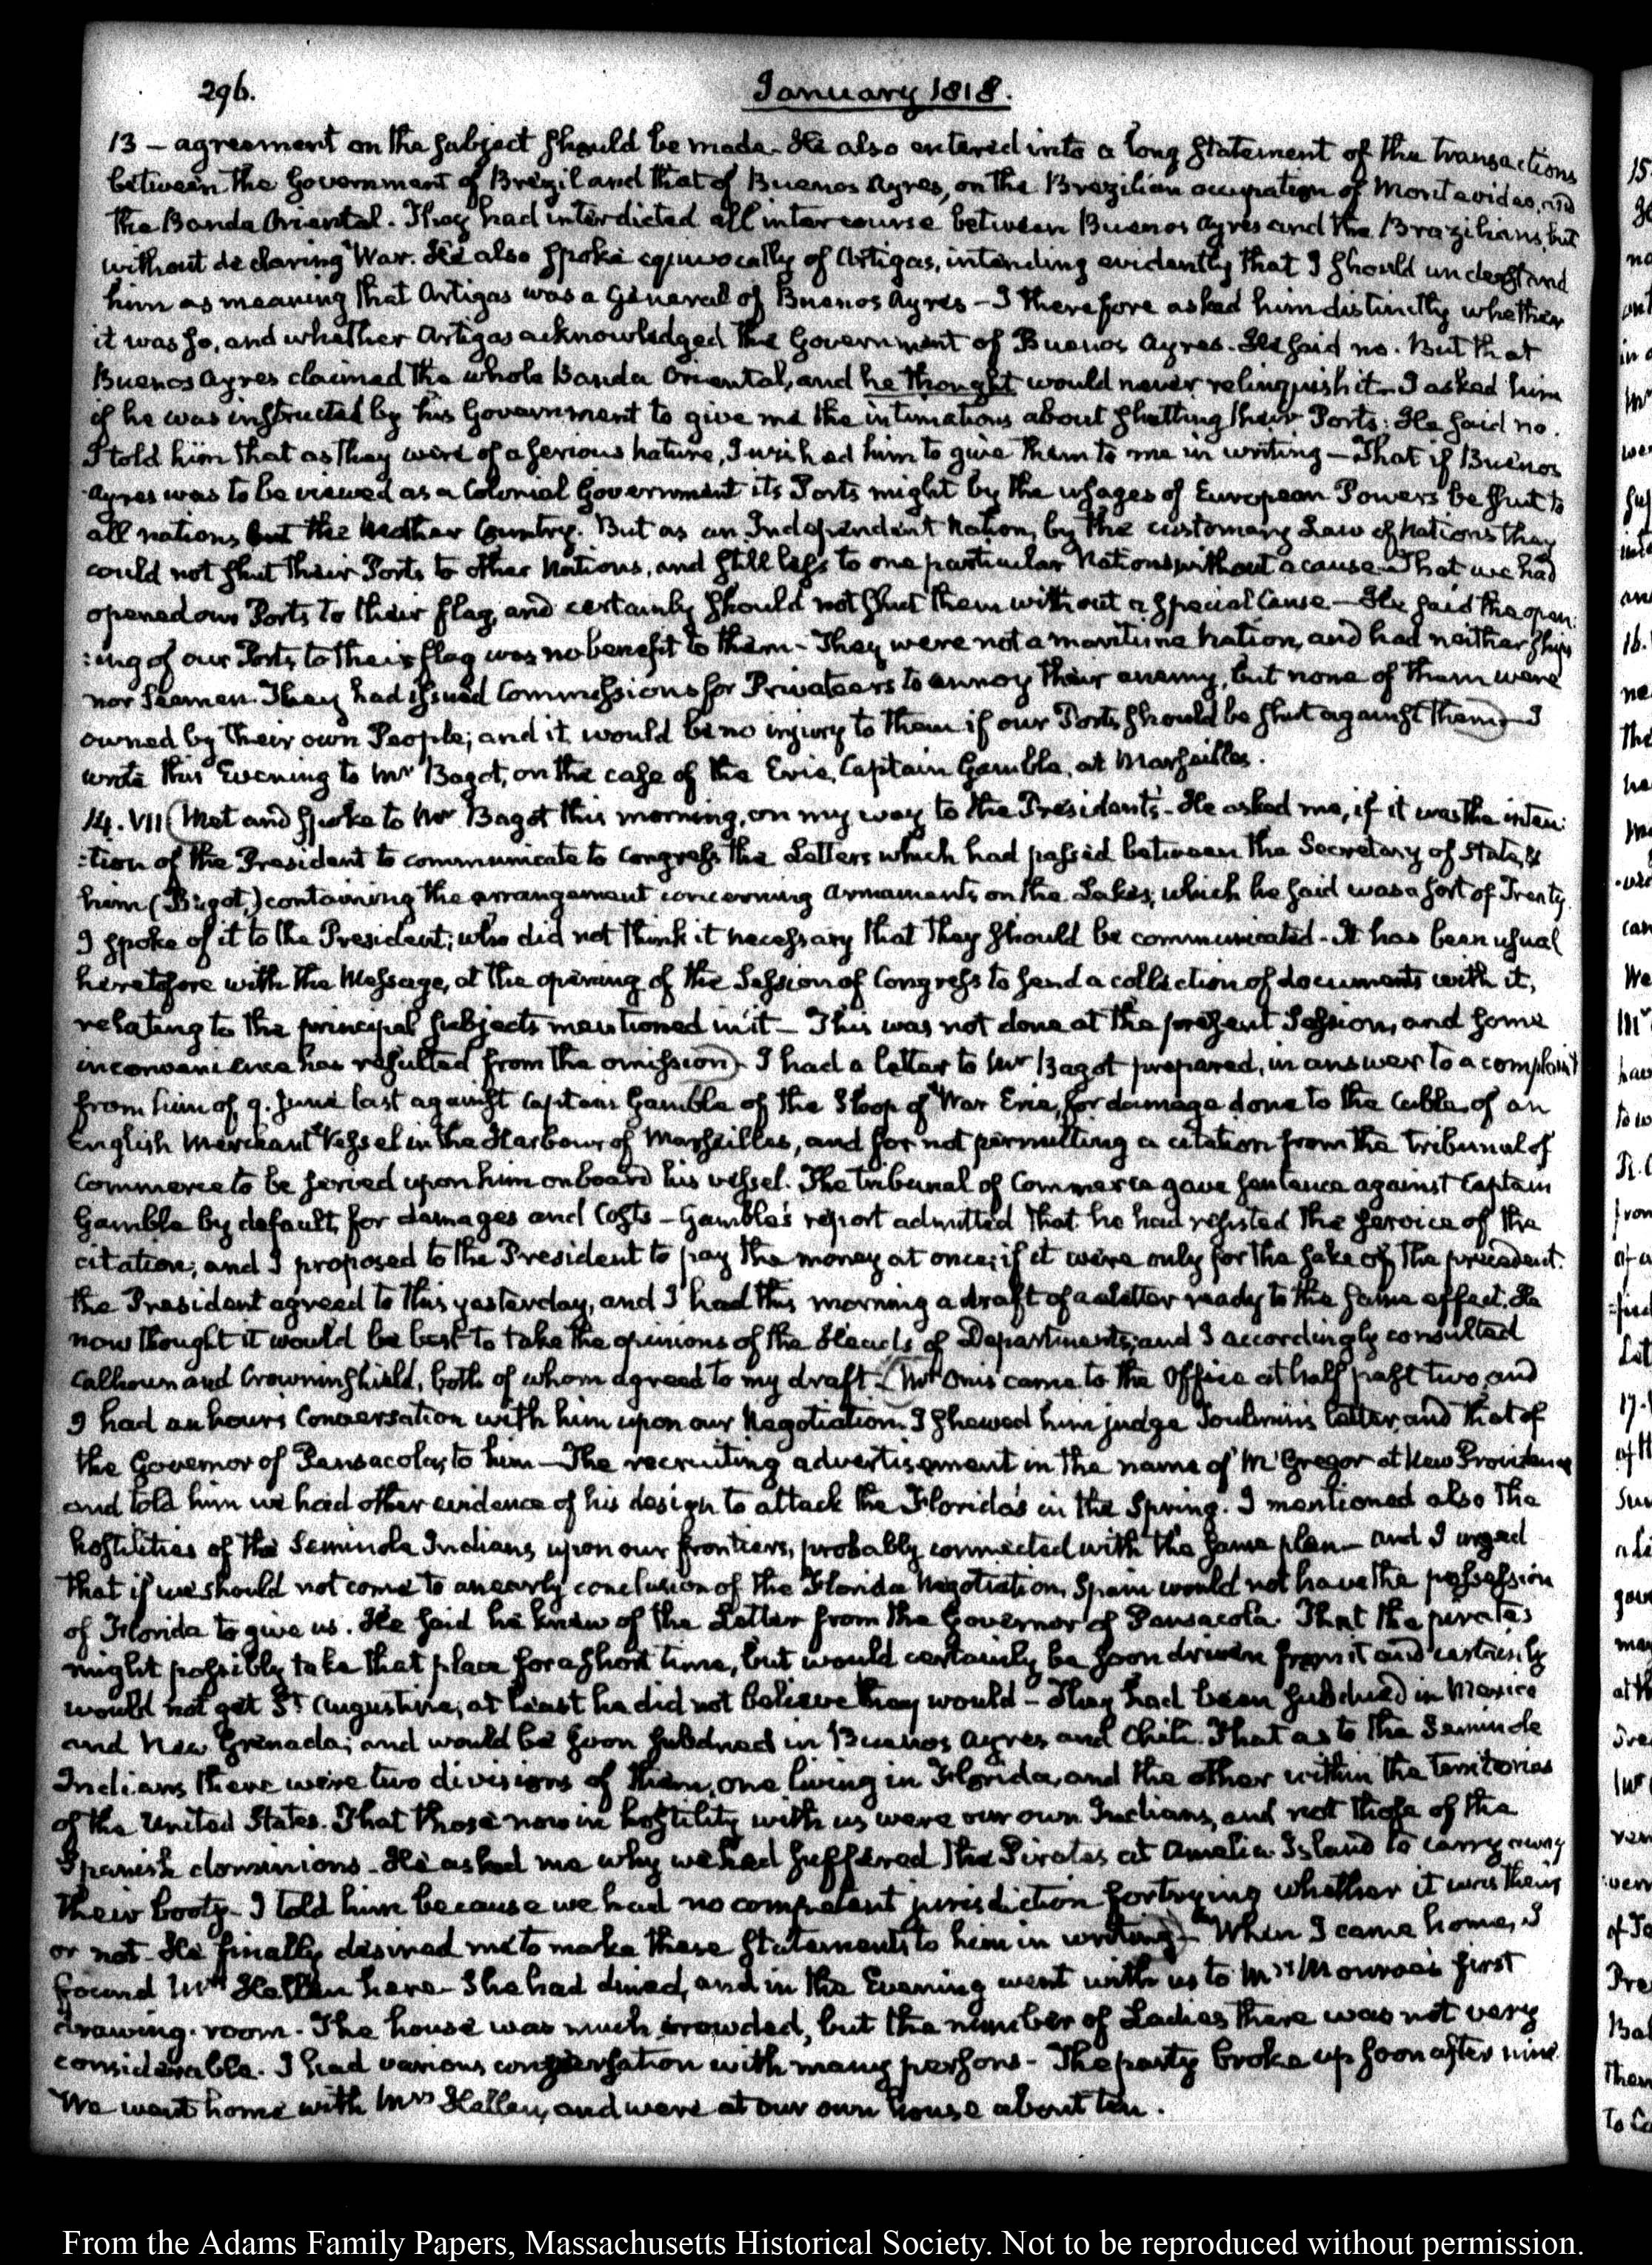 296.
January 1818.
13 – agreement on the subject should be made – He also entered into a long statement of the transactions
between the Government of Brazil and that of Buenos Ayres, on the Brazilian occupation of Montevideo, and
the Banda Oriental. They had interdicted all intercourse between Buenos Ayres and the Brazilians, but
without declaring War. He also spoke equivocally of Artigas, intending evidently that I should understand
him as meaning that Artigas was a General of Buenos Ayres – I therefore asked him distinctly whether
it was so, and whether Artigas acknowledged the Government of Buenos Ayres. He said no. But that
Buenos Ayres claimed the whole Banda Oriental, and he thought would never relinquish it – I asked him
if he was instructed by his Government to give me the intimations about shutting their Ports: He said no.
I told him that as they were of a serious nature, I wished him to give them to me in writing – That if Buenos
Ayres was to be viewed as a Colonial Government its Ports might by the usages of European Powers be shut to
all nations but the Mother Country. But as an Independent Nation, by the customary Law of Nations they
could not shut their Ports to other Nations, and still less to one particular Nation without a cause – That we had
opened our Ports to their flag, and certainly should not shut them without a special Cause – He said the open:
:ing of our Ports to their flag was no benefit to them – They were not a maritime Nation, and had neither ships
nor Seamen. They had issued Commissions for Privateers to annoy their enemy, but none of them were
owned by their own People; and it would be no injury to them if our Ports should be shut against them) – I
wrote this Evening to Mr Bagot, on the case of the Erie, Captain Gamble, at Marseilles.
14. VII (Met and spoke to Mr Bagot this morning, on my way to the President's – He asked me, if it was the inten:
:tion of the President to communicate to Congress the Letters which had passed between the Secretary of State, &
him (Bagot,) containing the arrangement concerning armaments on the Lakes; which he said was a sort of Treaty.
I spoke of it to the President; who did not think it necessary that they should be communicated – It has been usual
heretofore with the Message, at the opening of the Session of Congress to send a collection of documents with it,
relating to the principal subjects mentioned in it – This was not done at the present Session, and some
inconvenience has resulted from the omission) – I had a letter to Mr Bagot prepared, in answer to a complaint
from him of 9. June last against Captain Gamble of the Sloop of War Erie, for damage done to the Cable of an
English Merchant Vessel in the Harbour of Marseilles, and for not permitting a citation from the Tribunal of
Commerce to be served upon him on board his vessel. The tribunal of Commerce gave sentence against Captain
Gamble by default, for damages and Costs – Gamble's report admitted that he had resisted the service of the
citation; and I proposed to the President to pay the money at once; if it were only for the sake of the precedent.
the President agreed to this yesterday, and I had this morning a draft of a letter ready to the same effect. He
now thought it would be best to take the opinions of the Heads of Departments; and I accordingly consulted
Calhoun and Crowninshield, both of whom agreed to my draft. (Mr Onis came to the Office at half past two, and
I had an hours Conversation with him upon our Negotiation. I shewed him judge Toulmin's letter, and that of
the Governor of Pensacola, to him – The recruiting advertisement in the name of McGregor at New Providence
and told him we had other evidence of his design to attack the Florida's in the Spring. I mentioned also the
hostilities of the Seminole Indians upon our frontiers, probably connected with the same plan – and I urged
that if we should not come to an early conclusion of the Florida Negotiation, Spain would not have the possession
of Florida to give us. He said he knew of the Letter from the Governor of Pensacola. That the pirates
might possibly take that place for a short time, but would certainly be soon driven from it and certainly
would not get St Augustine; at least he did not believe they would – They had been subdued in Mexico
and New Grenada; and would be soon subdued in Buenos Ayres and Chili. That as to the Seminole
Indians there were two divisions of them, one living in Florida, and the other within the territories
of the United States. That those now in hostility with us were our own Indians, and not those of the
Spanish dominions – He asked me why we had suffered the Pirates at Amelia Island to carry away
their booty – I told him because we had no competent jurisdiction for trying whether it was theirs
or not – He finally desired me to make these statements to him in writing) – When I came home, I
found Mrs Hellen here – She had dined, and in the Evening went with us to Mrs Monroe's first
drawing-room – The house was much crowded, but the number of Ladies there was not very
considerable. I had various conversation with many persons – The party broke up soon after nine.
We went home with Mrs Hellen, and were at our own house about ten.
From the Adams Family Papers, Massachusetts Historical Society. Not to be reproduced without permission.